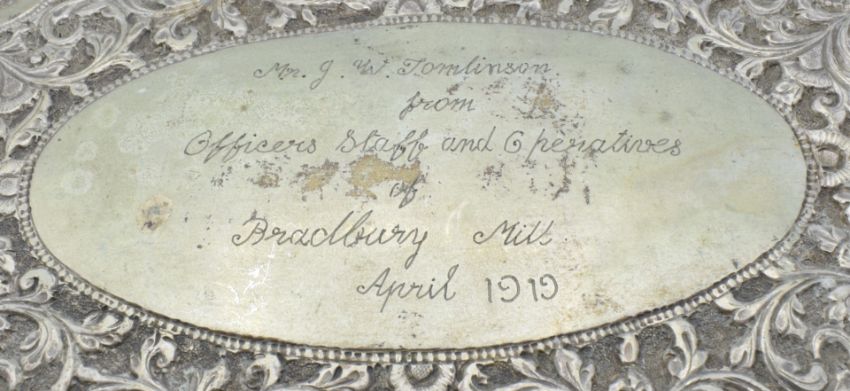 Mr. J. W. Tomlinson
from
Officers Staff and Operatives
of
Bradbury Mill
April 1919